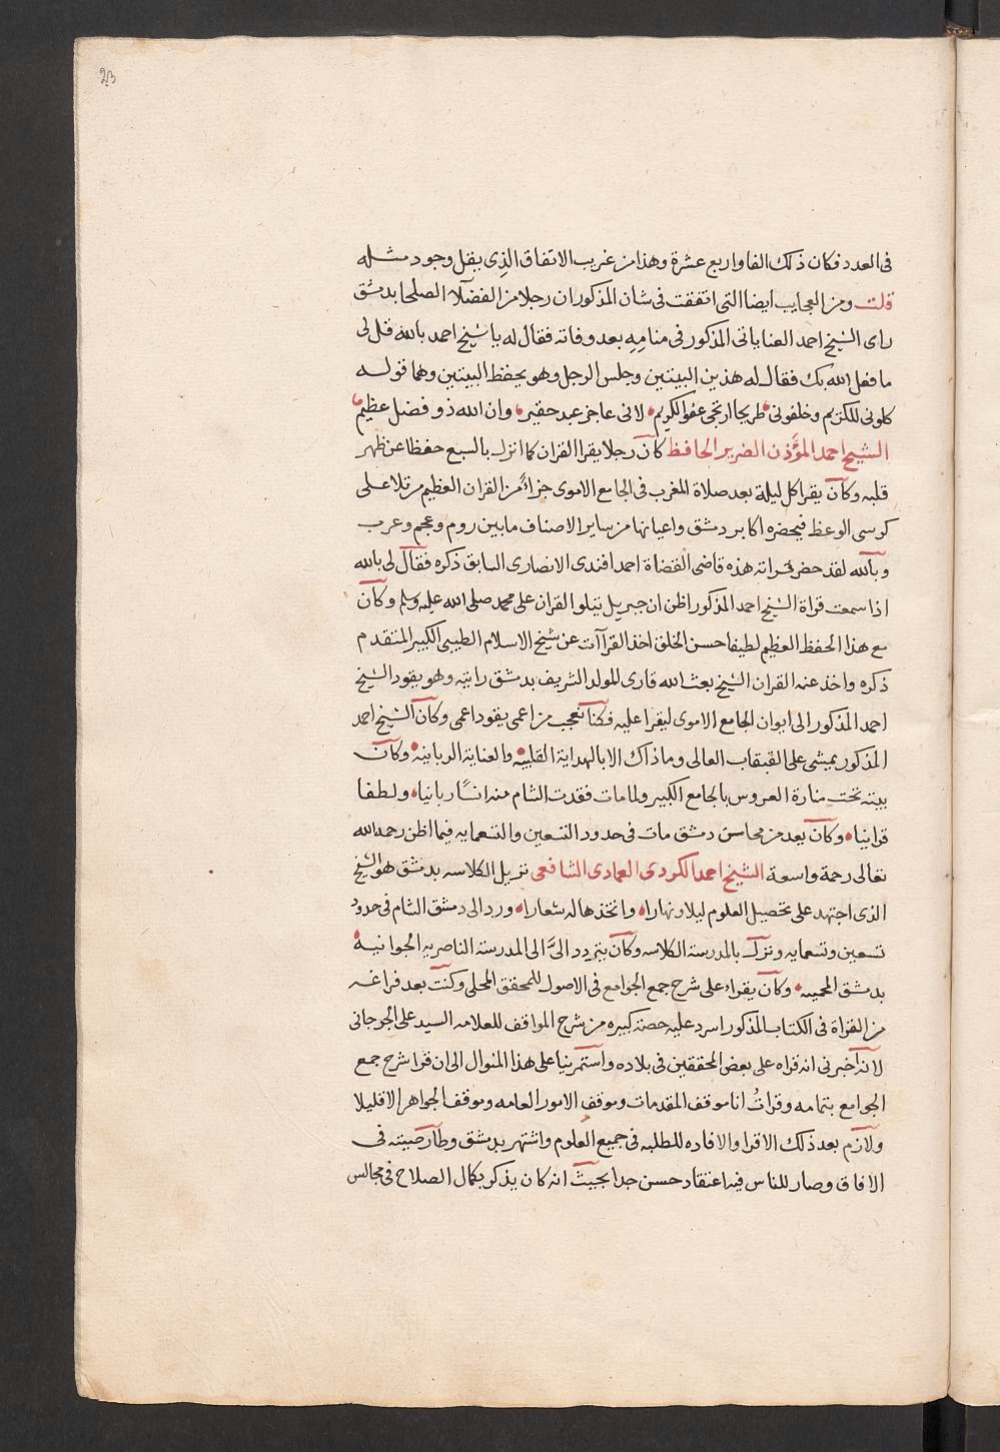 23
فى العدد فكان ذلك الفا واربع عشرة وهذا من غريب الاتفاق الذى يقل وجود مثله
قلت ومن العجايب ايضا التى اتفقت فى شان المذكور ان رجلا من الفضلآء الصلحا بدمشق
راى الشيخ احمد العناياتى المذكور فى منامه بعد وفاته فقال له يا شيخ احمد بالله قل لى
ما فعل الله بك فقال له هذين البيتين وجلس الرجل وهو يحفظ البيتين وهما قوله
كلونى للكريم وخلفونى طريحا ارتجى عفو الكريم لانى عاجز عبد حقير وان الله ذو فضل عظيم
الشيخ احمد المؤذن الضرير الحافظ كان رجلا يقرا القران كما انزل بالسبع حفظا عن ظهر
قلبه وكان يقرا كل ليلة بعد صلاة المغرب فى الجامع الاموى جزاء من القران العظيم مرتلا على
كرسى الوعظ فيحضره اكابر دمشق واعيانها من ساير الاصناف ما بين روم وعجم وعرب
وبالله لقد حضر قراته هذه قاضى القضاة احمد افندى الانصارى السابق ذكره فقال لى بالله
اذا سمعت قراة الشيخ احمد المذكور اظن ان جبريل يتلوا القران على محمد صلى الله عليه وسلم وكان
مع هذا الحفظ العظيم لطيفا حسن الخلق اخذ القراآت عن شيخ الاسلام الطيبى الكبير المتقدم
ذكره واخذ عنه القران الشيخ بعث الله قارى المولد الشريف بدمشق رايته وهو يقود الشيخ
احمد المذكور الى ايوان الجامع الاموى ليقرا عليه فكنا نعجب من اعمى يقود اعمى وكان الشيخ احمد
المذكور يمشى على القبقاب العالى وما ذاك الا بالهداية القلبيه والعناية الربانيه وكان
بيته تحت منارة العروس بالجامع الكبير ولما مات فقدت الشام منه انسًا ربانيا ولطفا
قرانيا وكان يعد من محاسن دمشق مات فى حدود التسعين والتسعمايه فيما اظن رحمه الله
تعالى رحمة واسعة الشيخ احمد الكردى العمادى الشافعى نزيل الكلاسه بدمشق هو الشيخ
الذى اجتهد على تحصيل العلوم ليلا ونهارا واتخذها له شعارا ورد الى دمشق الشام فى حدود
تسعين وتسعمايه ونزل بالمدرسة الكلاسه وكان يتردد الىّ الى المدرسة الناصريه الجوانيه
بدمشق المحميه وكان يقراء على شرح جمع الجوامع فى الاصول للمحقق المحلى وكنت بعد فراغه
من القراة فى الكتاب المذكور اسرد عليه حصة كبيره من شرح المواقف للعلامه السيد على الجرجانى
لانه اخبرنى انه قراه على بعض المحققين فى بلاده واستمرينا على هذا المنوال الى ان قرا شرح جمع
الجوامع بتمامه وقراتُ انا موقف المقدمات وموقف الامور العامه وموقف الجواهر الا قليلا
ولازم بعد ذلك الاقرا والافاده للطلبه فى جميع العلوم واشتهر بدمشق وطار صيته فى
الافاق وصار للناس فيه اعتقاد حسن جدا بحيث انه كان يذكر بكمال الصلاح فى مجالس